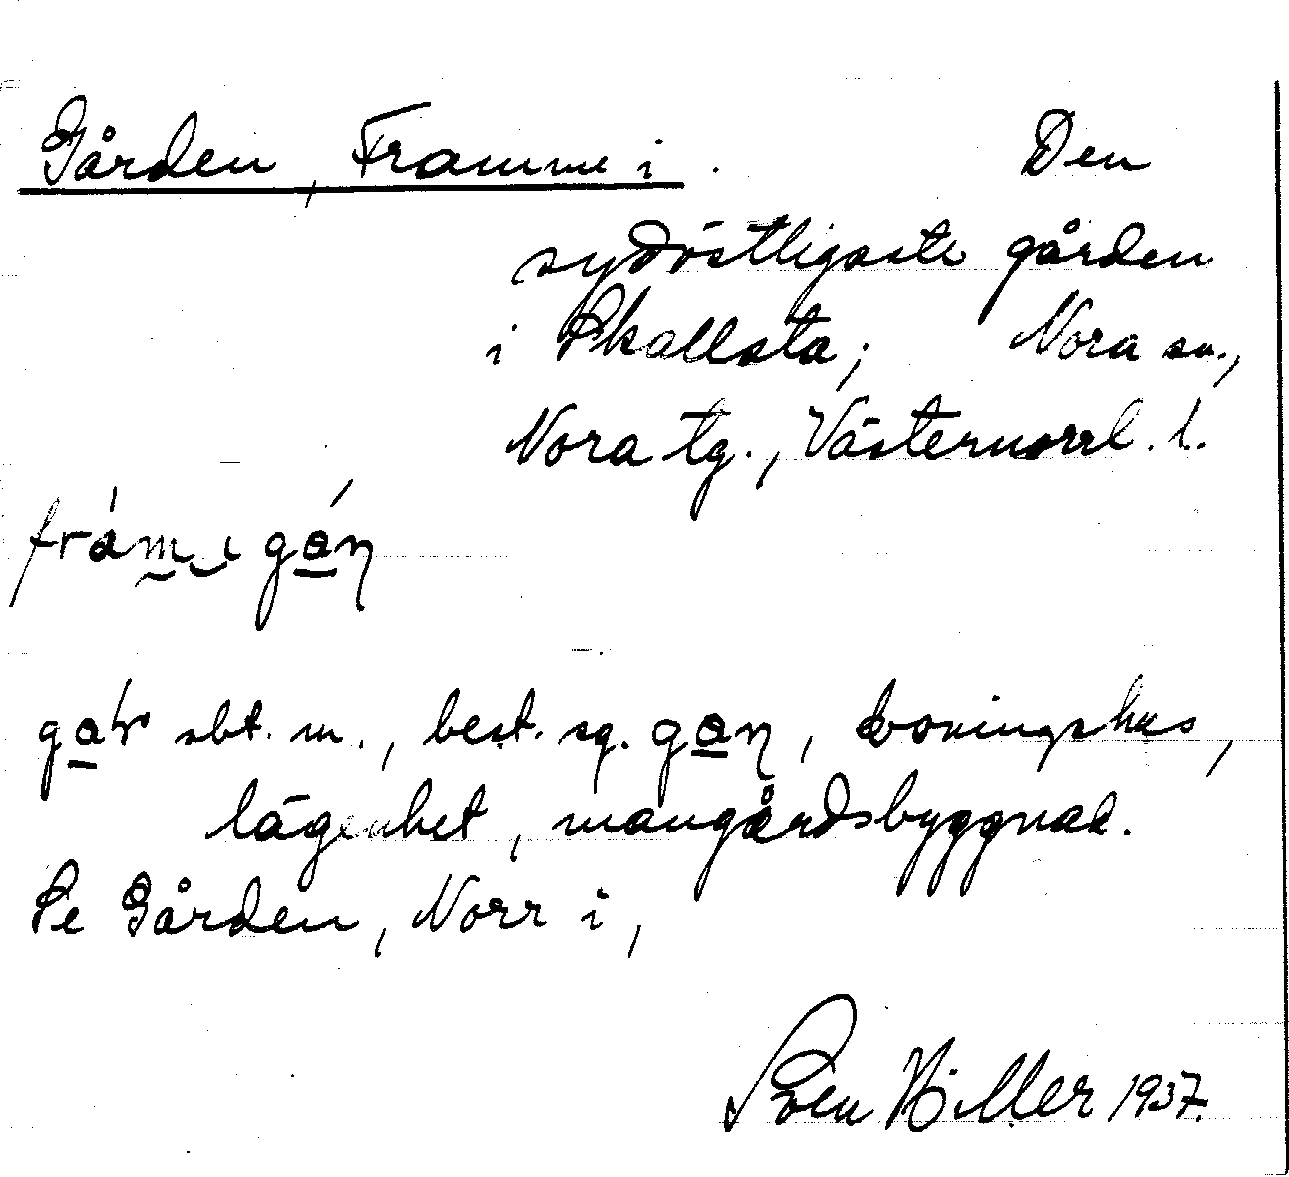 Gården, Framme i. Den
sydöstligaste gården
i Skallsta; Nora sn.,
Nora tg., Västernorrl. l.
frám i gán
sbt. m., best. sg. gan, boningshus,
lägenhet, mangårdsbyggnad.
Se Gården, Norr i,
Sven Hiller 1937.